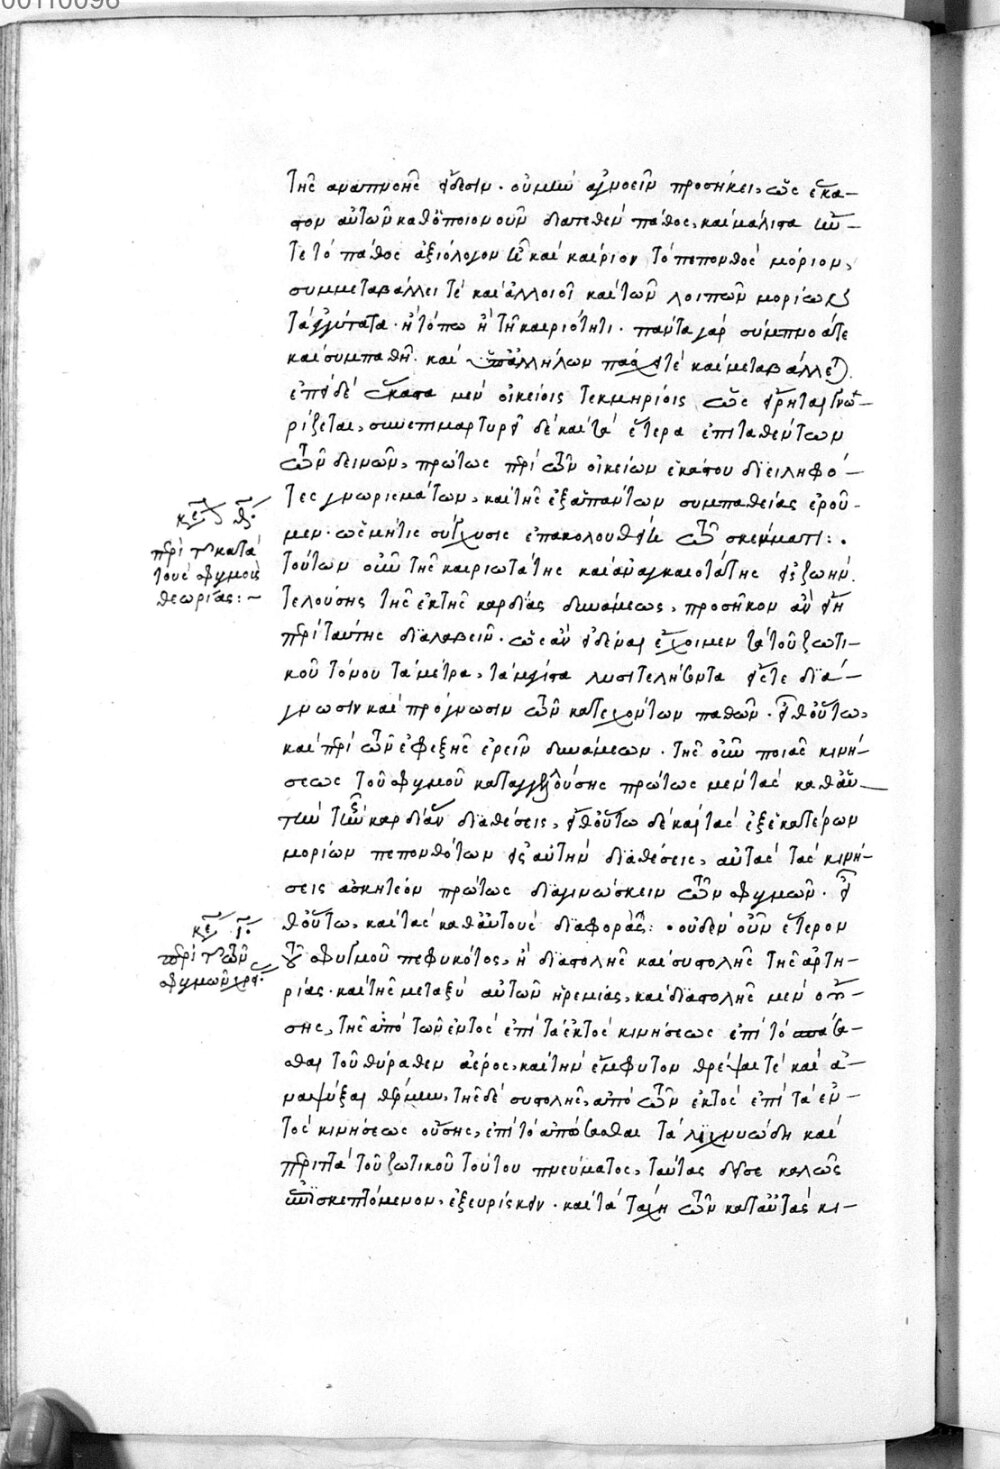 00110096
τῆς ἀναπνοῆς εἴδεσιν. οὐ μὴν ἀγνοεῖν προσήκει, ὡς ἕκα-
στον αὐτῶν καθ' ὁποῖον οὖν διατεθὲν πάθος, καὶ μάλιστα
τε τὸ πάθος ἀξιόλογον ᾖ καὶ καίριον τὸ πεπονθὸς μόριον,
συμμεταβάλλει τὲ καὶ ἀλλοιοῖ καὶ τῶν λοιπῶν μορίων
τὰ ἐγγύτατα. ἢ τόπω ἢ τῇ καιριότητι. πάντα γὰρ σύμπνοά τε
καὶ συμπαθῆ. καὶ ὑπ' ἀλλήλων πάσχει τὲ καὶ μεταβάλλεται.
ἐπεὶ δὲ ἕκαστα μὲν οἰκείοις τεκμηρίοις ὡς εἴρηται γνω-
ρίζεται, συνεπιμαρτυρεῖ δὲ καὶ τὰ ἕτερα ἐπιταθέντων
τῶν δεινῶν, πρώτως περὶ τῶν οἰκείων ἑκάστου διειληφό-
τες γνωρισμάτων, καὶ τῆς ἐξ ἁπάντων συμπαθείας ἐροῦ-
μεν. ὡς μήτις σύγχυσις ἐπακολουθείη τῶ σκέμματι:.
κεφ θ.
περὶ τῆς κατὰ
τοὺς σφυγμοὺς
θεωρίας:~
τούτων οὖν τῆς καιριωτάτης καὶ ἀναγκαιοτάτης εἰς ζωὴν
τελούσης τῆς ἐκ τῆς καρδίας δυνάμεως, προσῆκον ἂν εἴη
περὶ ταύτης διαλαβεῖν. ὡς ἂν εἰδέναι ἔχοιμεν τὰ τοῦ ζωτι-
κοῦ τόνου τὰ μέτρα, τὰ μέγιστα λυσιτελήσοντα εἴς τε διά-
γνωσιν καὶ πρόγνωσιν τῶν κατεχόντων παθῶν. εἶθ' οὕτω,
καὶ περὶ τῶν ἐφεξῆς ἐρεῖν δυνάμεων. τῆς οὖν ποιᾶς κινή-
σεως τοῦ σφυγμοῦ καταγγελλούσης πρώτως μὲν τὰς καθ' αὑ-
τὴν τὴν καρδίαν διαθέσεις, εἶθ' οὕτω δὲ καὶ τὰς ἐξ ἑκατέρων
μορίων πεπονθότων εἰς αὐτὴν διαθέσεις, αὐτὰς τὰς κινή-
σεις ἀσκητέον πρώτως διαγινώσκειν τῶν σφυγμῶν. εἶ
θ' οὕτω, καὶ τὰς καθ' αὑτοὺς διαφοράς:. οὐδὲν οὖν ἕτερον
κεφ ι.
περὶ τῆς τῶν
σφυγμῶν χρείας.
τοῦ σφυγμοῦ πεφυκότος, ἢ διαστολῆς καὶ συστολῆς τῆς ἀρτη-
ρίας. καὶ τῆς μεταξὺ αὐτῶν ἠρεμίας, καὶ διαστολῆς μὲν οὔ-
σης, τῆς ἀπὸ τῶν ἐντὸς ἐπὶ τὰ ἐκτὸς κινήσεως ἐπὶ τὸ σπᾶ-
σθαι τοῦ θύραθεν ἀέρος, καὶ τὴν ἔμφυτον θρέψαι τὲ καὶ ἀ-
ναψύξαι θέρμην, τῆς δὲ συστολῆς, ἀπὸ τῶν ἐκτὸς ἐπὶ τὰ ἐν-
τὸς κινήσεως οὔσης, ἐπὶ τὸ ἀπώσασθαι τὰ λιγνυώδη καὶ
περιττὰ τοῦ ζωτικοῦ τούτου πνεύματος, ταύτας δεῖ σε καλῶς
ἐπισκεπτόμενον, ἐξευρίσκειν. καὶ τὰ τάχη τῶν κατ' αὐτὰς κι-